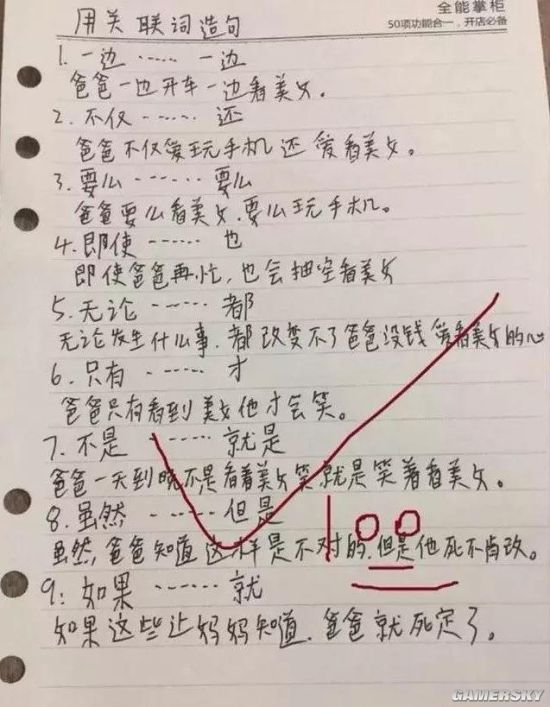 全能掌柜
50项功能合一，开店必备
用关联词造句
1. 一边 ······ 一边
爸爸一边开车一边看美女。
2. 不仅 ······ 还
爸爸不仅爱玩手机还爱看美女。
3. 要么 ······ 要么
爸爸要么看美女，要么玩手机。
4. 即使 ······ 也
即使爸爸再忙，也会抽空看美女
5. 无论 ······ 都
无论发生什么事，都改变不了爸爸没钱爱看美女的心
6. 只有 ······ 才
爸爸只有看到美女他才会笑。
7. 不是 ······ 就是
爸爸一天到晚不是看着美女笑就是笑着看美女。
8. 虽然 ······ 但是
虽然，爸爸知道这样是不对的，但是他死不肯改。
100
9: 如果 ······ 就
如果这些让妈妈知道，爸爸就死定了。
GAMERSKY